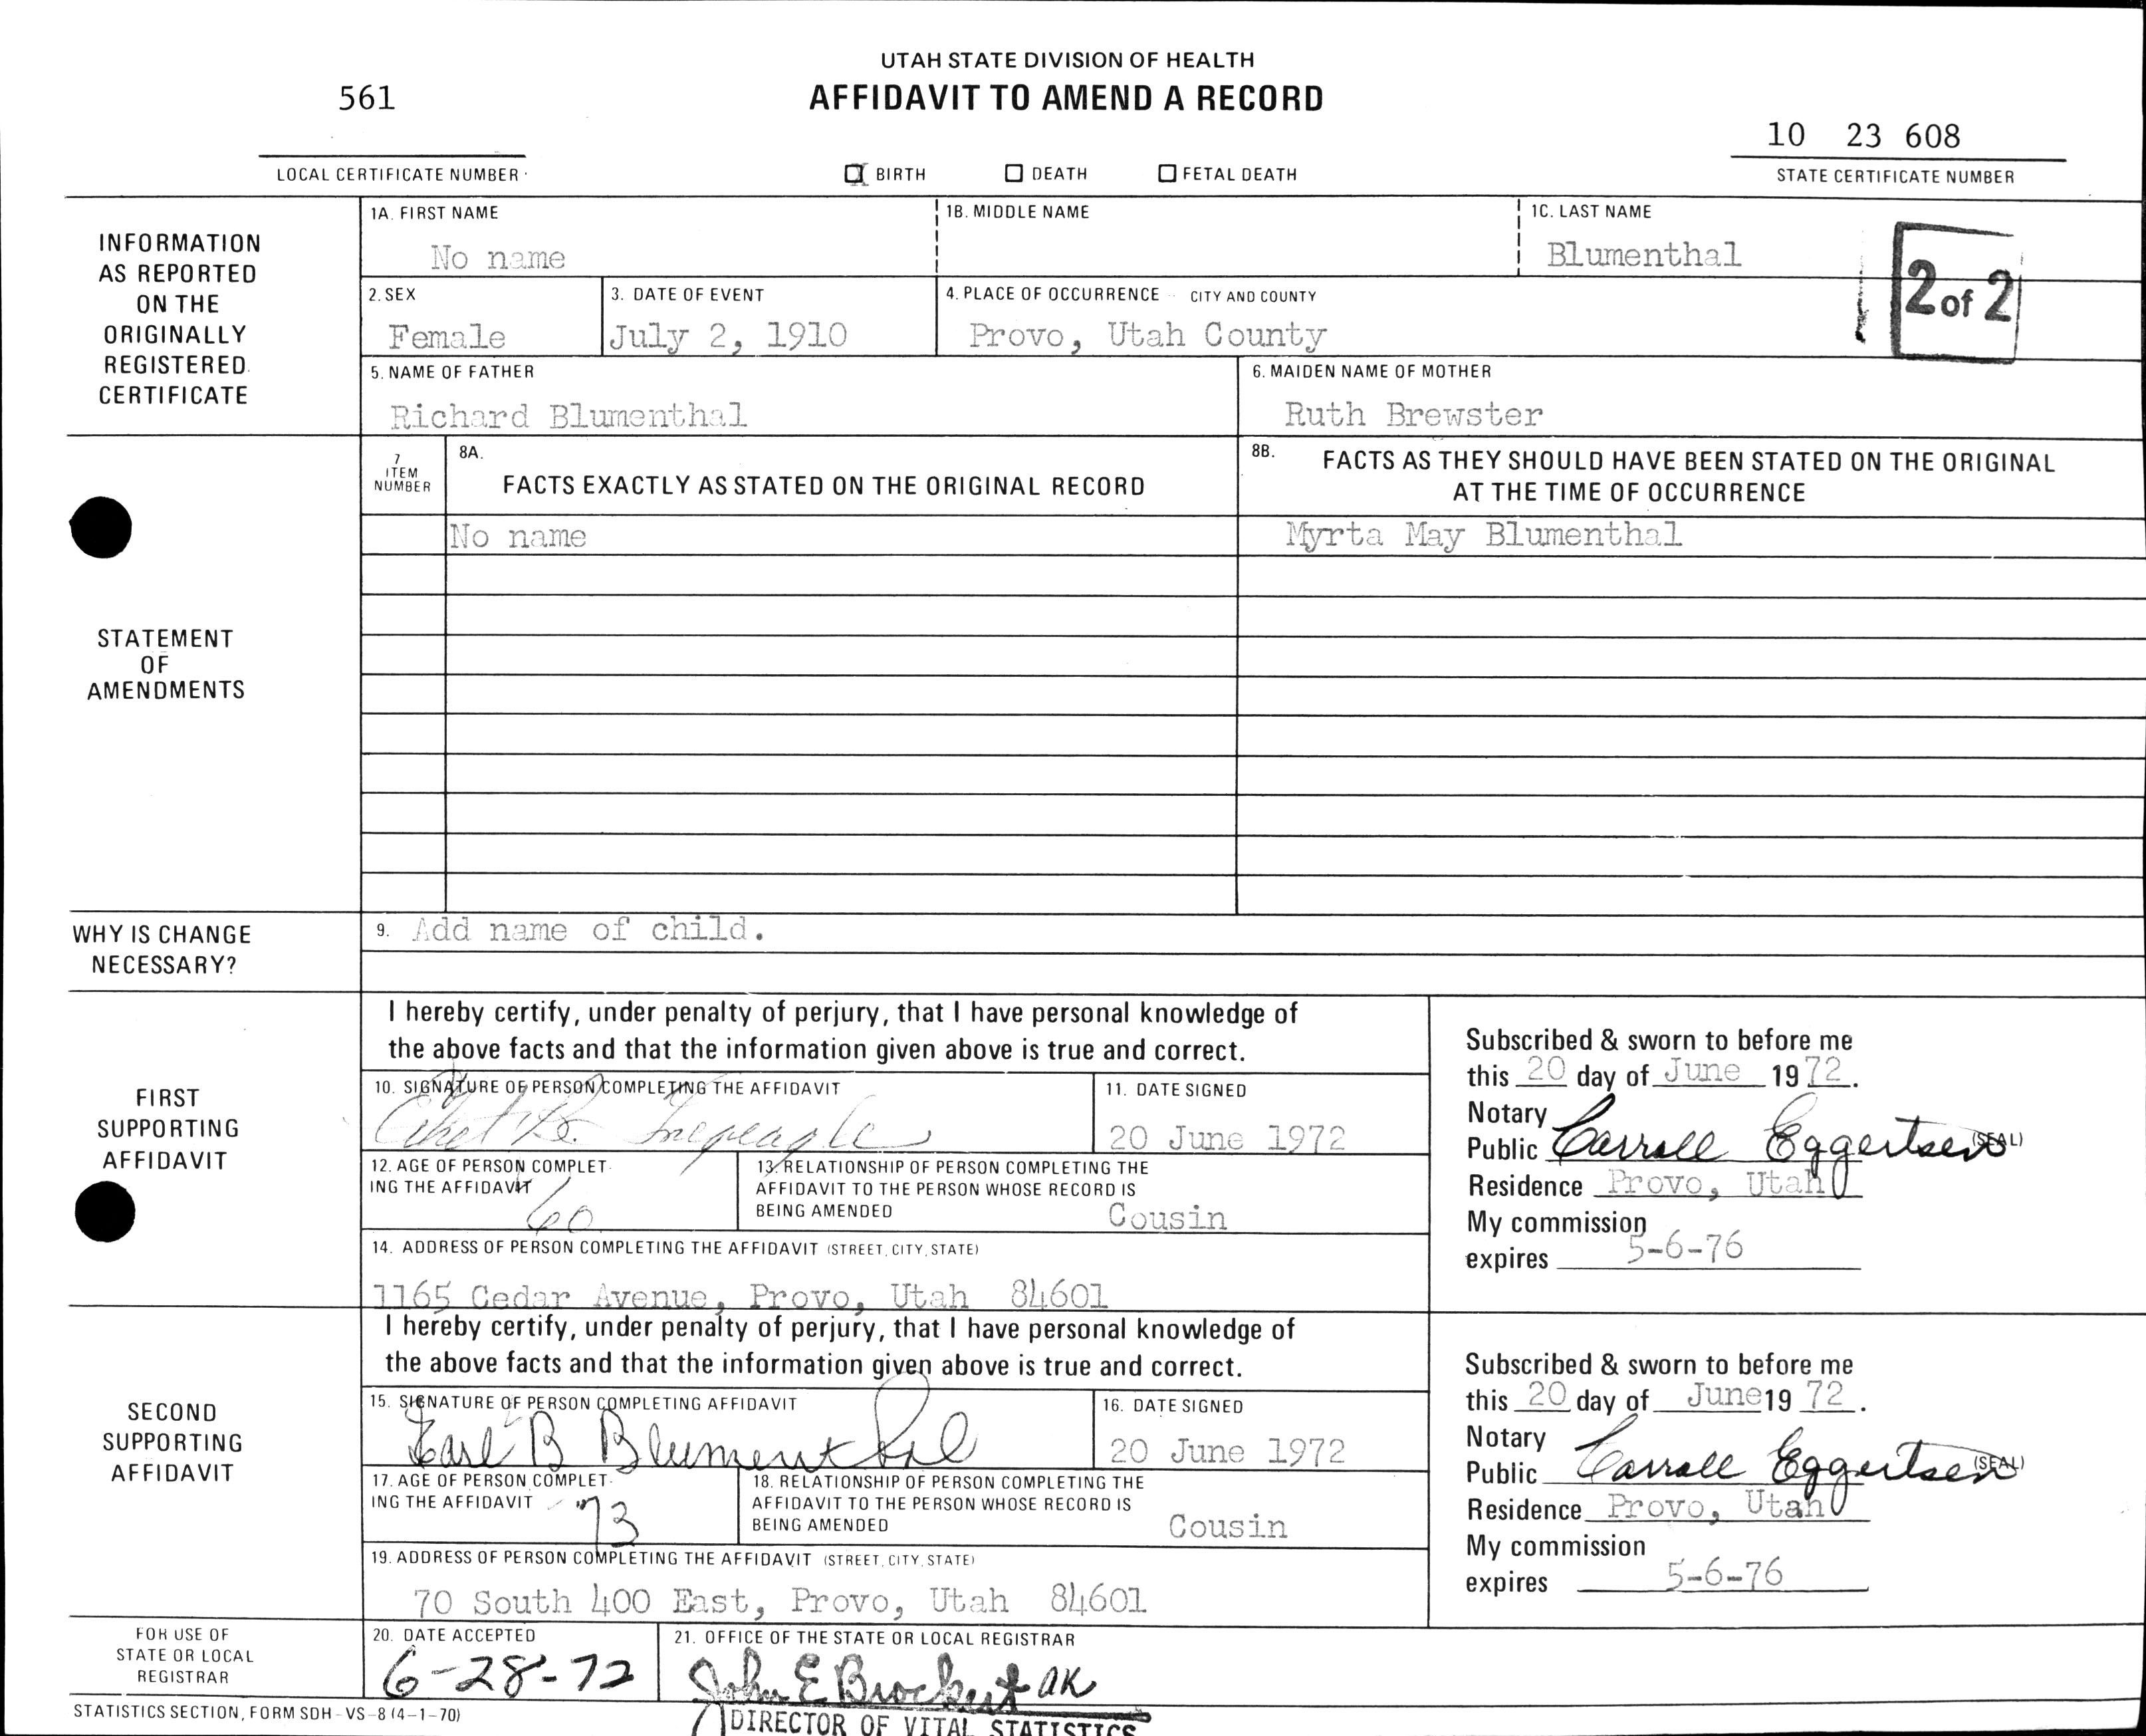 UTAH STATE DIVISION OF HEALTH
561
AFFIDAVIT TO AMEND A RECORD
10 23 608
LOCAL CERTIFICATE NUMBER
BIRTH
DEATH
FETAL DEATH
STATE CERTIFICATE NUMBER
INFORMATION
AS REPORTED
ON THE
ORIGINALLY
REGISTERED
CERTIFICATE
1A. FIRST NAME
No name
1B. MIDDLE NAME
1C. LAST NAME
Blumenthal
2 of 2
2. SEX
Female
3. DATE OF EVENT
July 2, 1910
4. PLACE OF OCCURRENCE - CITY AND COUNTY
Provo, Utah County
5. NAME OF FATHER
Richard Blumenthal
6. MAIDEN NAME OF MOTHER
Ruth Brewster
STATEMENT
OF
AMENDMENTS
7
ITEM
NUMBER
8A.
FACTS EXACTLY AS STATED ON THE ORIGINAL RECORD
8B. FACTS AS THEY SHOULD HAVE BEEN STATED ON THE ORIGINAL
AT THE TIME OF OCCURRENCE
No name
Myrta May Blumenthal
WHY IS CHANGE
NECESSARY?
9. Add name of child.
FIRST
SUPPORTING
AFFIDAVIT
I hereby certify, under penalty of perjury, that I have personal knowledge of
the above facts and that the information given above is true and correct.
10. SIGNATURE OF PERSON COMPLETING THE AFFIDAVIT
B.
11. DATE SIGNED
20 June 1972
12. AGE OF PERSON COMPLET-
ING THE AFFIDAVIT
60
13. RELATIONSHIP OF PERSON COMPLETING THE
AFFIDAVIT TO THE PERSON WHOSE RECORD IS
BEING AMENDED
Cousin
14. ADDRESS OF PERSON COMPLETING THE AFFIDAVIT (STREET, CITY, STATE)
1165 Cedar Avenue, Provo, Utah 84601
Subscribed & sworn to before me
this 20 day of June 1972.
Notary
Public Carrall Eggertsen (SEAL)
Residence Provo, Utah
My commission
expires 5-6-76
SECOND
SUPPORTING
AFFIDAVIT
I hereby certify, under penalty of perjury, that I have personal knowledge of
the above facts and that the information given above is true and correct.
15. SIGNATURE OF PERSON COMPLETING AFFIDAVIT
Earl B Blumenthal
16. DATE SIGNED
20 June 1972
17. AGE OF PERSON COMPLET-
ING THE AFFIDAVIT
73
18. RELATIONSHIP OF PERSON COMPLETING THE
AFFIDAVIT TO THE PERSON WHOSE RECORD IS
BEING AMENDED
Cousin
19. ADDRESS OF PERSON COMPLETING THE AFFIDAVIT (STREET, CITY, STATE)
70 South 400 East, Provo, Utah 84601
Subscribed & sworn to before me
this 20 day of June 19 72.
Notary
Public Carrall Eggertsen (SEAL)
Residence Provo, Utah
My commission
expires 5-6-76
FOR USE OF
STATE OR LOCAL
REGISTRAR
20. DATE ACCEPTED
6-28-72
21. OFFICE OF THE STATE OR LOCAL REGISTRAR
John E Brockert AK
DIRECTOR OF VITAL STATISTICS
STATISTICS SECTION, FORM SDH-VS-8 (4-1-70)